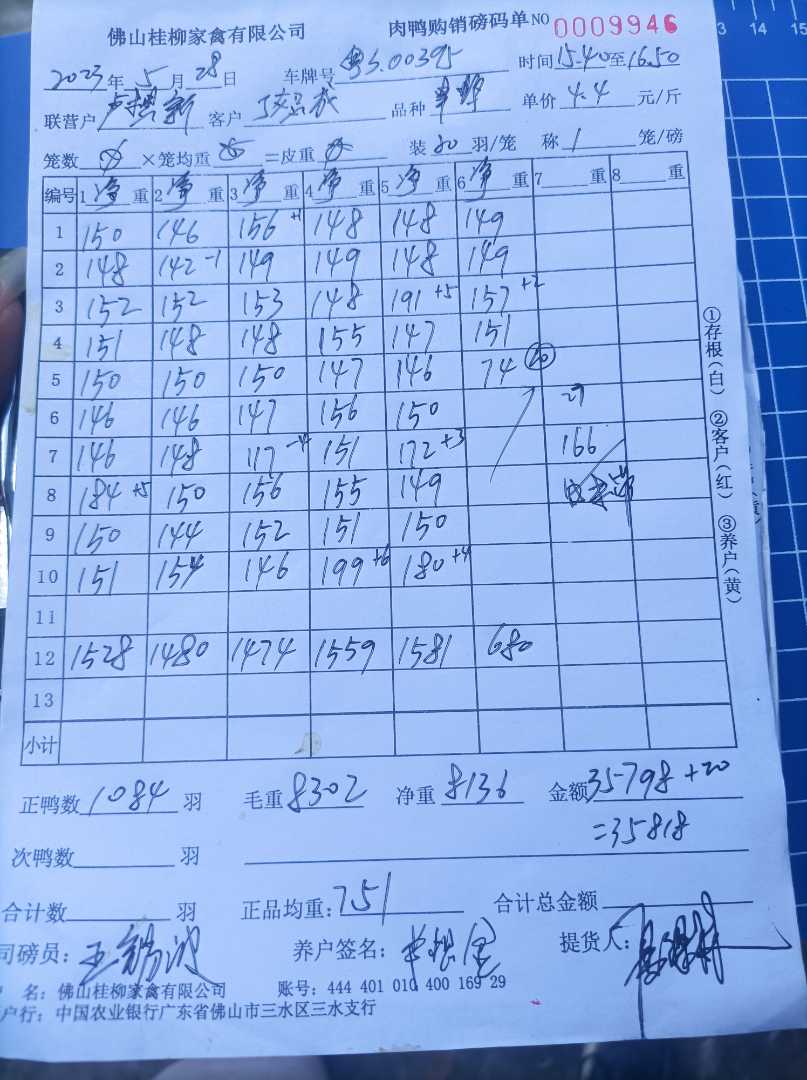 佛山桂柳家禽有限公司 肉鸭购销磅码单 NO 0009946
2023年5月28日 车牌号 粤S.00395 时间15.40至16.50
联营户 客户 品种 单价 4.4 元/斤
笼数 ×笼均重 =皮重 装 20 羽/笼 称 1 笼/磅
编号 1净重 2净重 3净重 4净重 5净重 6净重 7重 8重
1 150 146 156+1 148 148 149
2 148 142-1 149 149 148 149
3 152 152 153 148 191+5 157+2
4 151 148 148 155 147 151
5 150 150 150 147 146 74 20
6 146 146 147 156 150 27
7 146 148 117-4 151 172+3 166
8 184+5 150 156 155 149
9 150 144 152 151 150
10 151 154 146 199+6 180+4
11
12 1528 1480 1474 1559 1581 680
13
小计
正鸭数 1084 羽 毛重 8302 净重 8136 金额 35798+20
=35818
次鸭数 羽
合计数 羽 正品均重: 751 合计总金额
司磅员: 王锡波 养户签名: 提货人:
名: 佛山桂柳家禽有限公司 账号: 444 401 010 400 169 29
户行: 中国农业银行广东省佛山市三水区三水支行
①存根(白) ②客户(红) ③养户(黄)
13 14 15